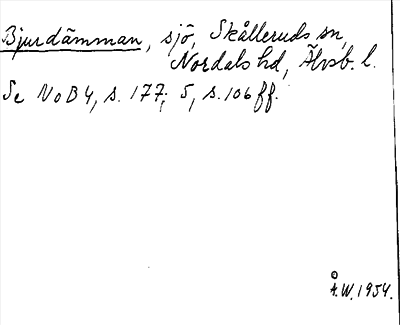 Bjurdämman, sjö, Skålleruds sn,
Nordals hd, Älvsb. l.
Se NoB 4, s. 177; 5, s. 106 ff.
Å.W. 1954.